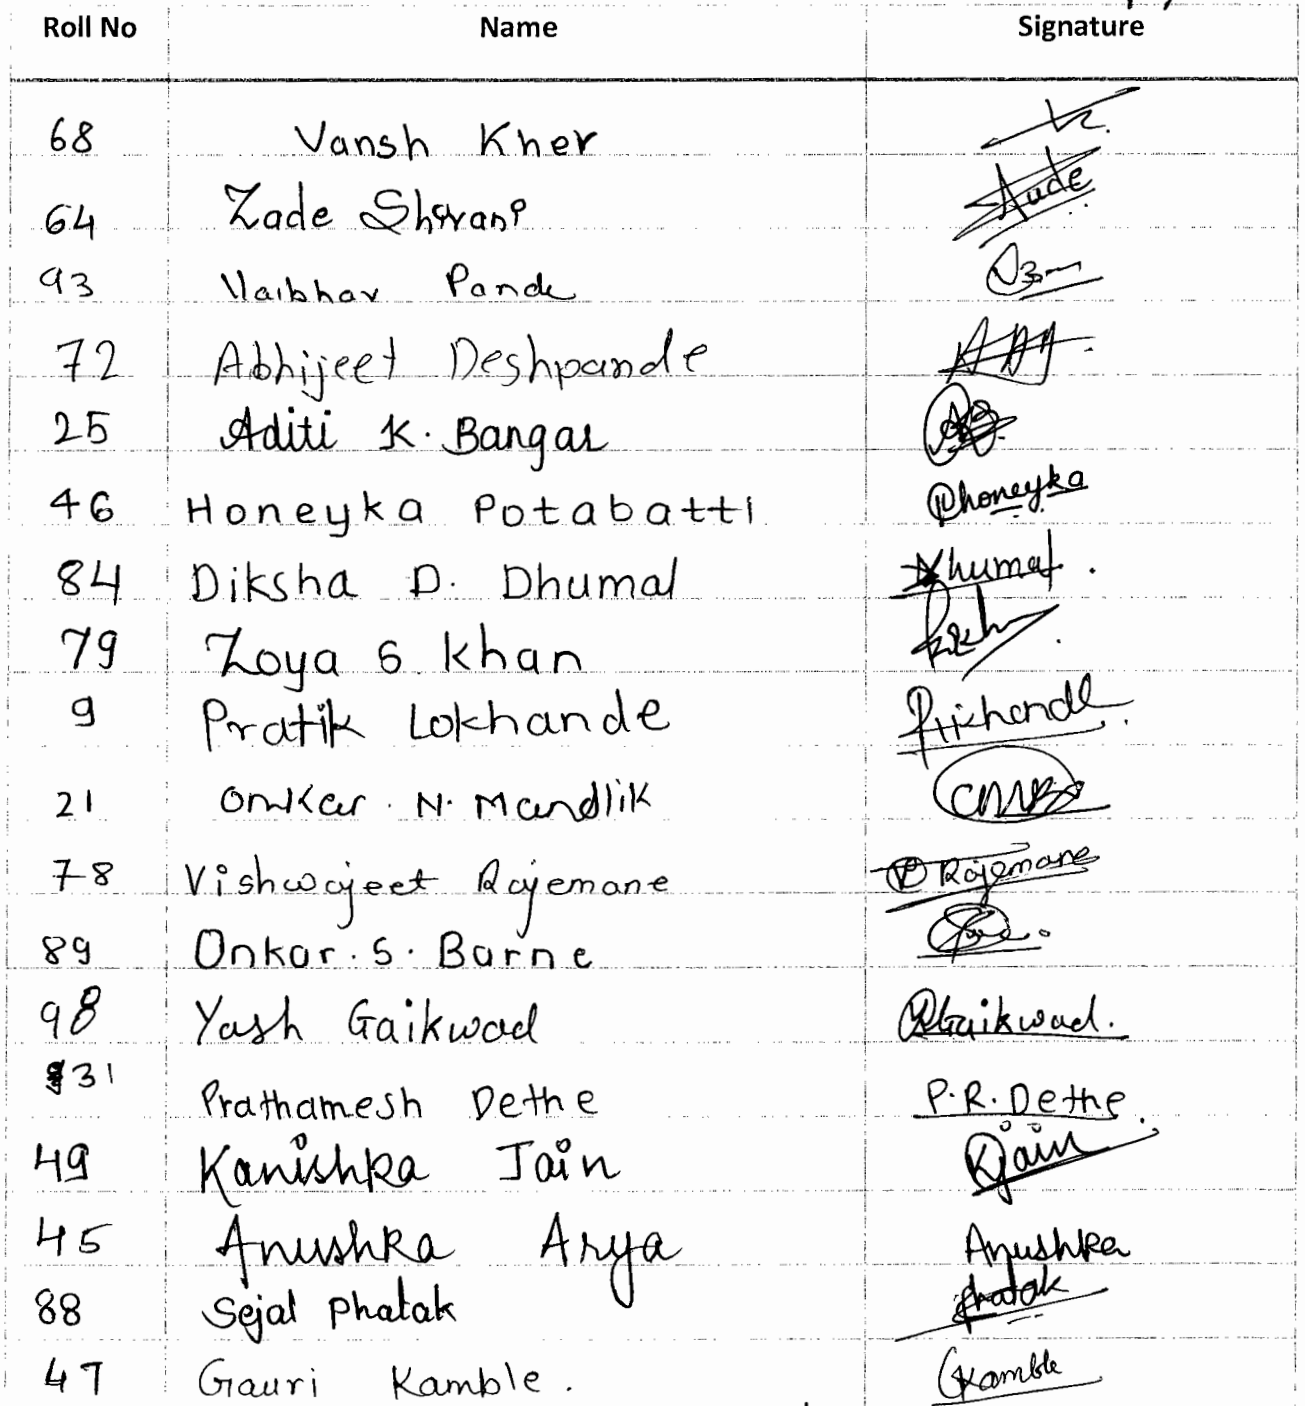 Roll No Name Signature
68 Vansh Kher
64 Zade Shivani
93 Vaibhav Pande
72 Abhijeet Deshpande
25 Aditi K. Bangar
46 Honeyka Potabatti Phoneyka
84 Diksha D. Dhumal Dhumal.
79 Zoya S Khan
9 Pratik Lokhande
21 Omkar . N. Mandlik
78 Vishwajeet Rajemane V Rajemane
89 Onkar. S. Barne
98 Yash Gaikwad YGaikwad.
31 Prathamesh Dethe P.R.Dethe.
49 Kanishka Jain Kjain
45 Anushka Arya Anushka
88 Sejal Phatak Phatak
47 Gauri Kamble. GKamble